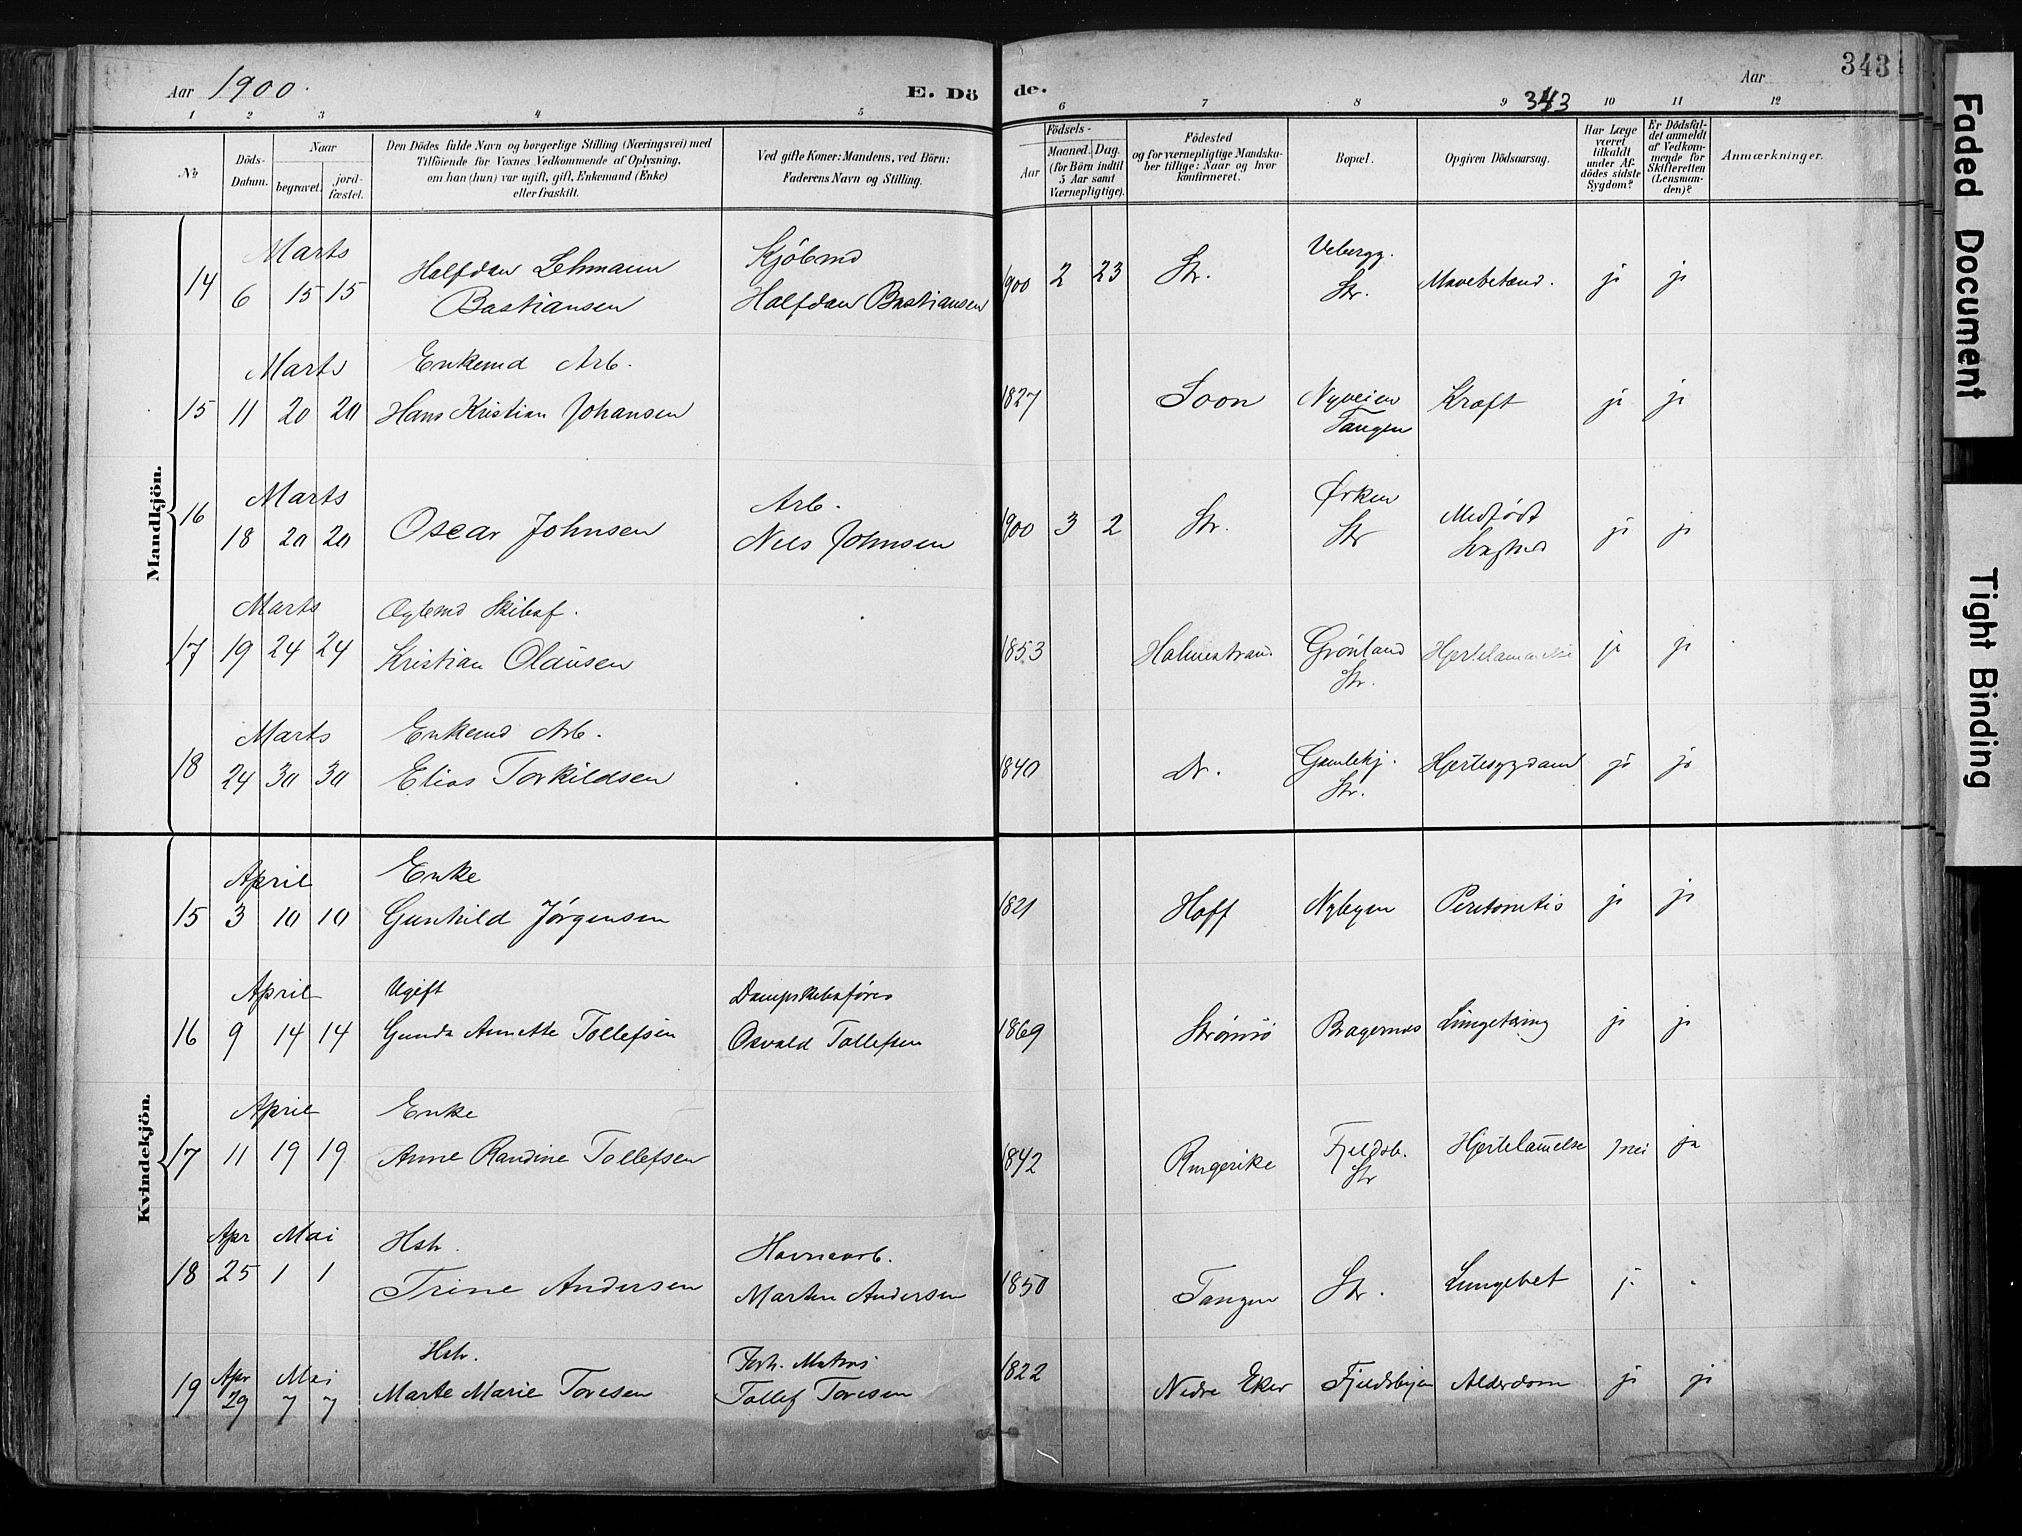 Aar 1900.
E. Dö
de.
Aar
343
343
1 2 3 4 5
6 7 8 9 10 11 12
No
Döds-Datum.
Naar
begravet.
jord-fæstet.
Den Dödes fulde Navn og borgerlige Stilling (Næringsvei) med
Tilföiende for Voxnes Vedkommende af Oplysning,
om han (hun) var ugift, gift, Enkemand (Enke)
eller fraskilt.
Ved gifte Koner: Mandens, ved Börn:
Faderens Navn og Stilling.
Födsels-
Aar
Maaned. Dag.
(for Börn indtil
5 Aar samt
Værnepligtige).
Födested
og for værnepligtige Mandska-
ber tillige: Naar og hvor
konfirmeret.
Bopæl.
Opgiven Dödsaarsag.
Har Læge
været
tilkaldt
under Af-
dödes sidste
Sygdom?
Er Dödsfal-
det anmeldt
af Vedkom-
mende for
Skifteretten
(Lensman-
den)?
Anmærkninger.
Mandkjön.
Marts
Kjöbmd
14 6 15 15 Halfdan Lehmann Bastiansen Halfdan Bastiansen 1900 2 23 Str. Vebergg. Str. Mavebetænd. ja ja
Marts Enkemd Arb.
15 11 20 20 Hans Kristian Johansen 1827 Soon Nyveien Tangen Kræft ja ja
Marts Arb.
16 18 20 20 Oscar Johnsen Nils Johnsen 1900 3 2 Str. Ørken Str Medfødt Svaghed ja ja
Marts Ægtemd Skibsf.
17 19 24 24 Kristian Olausen 1853 Holmestrand Grönland Str. Hjertelammelse ja ja
Marts Enkemd Arb.
18 24 30 30 Elias Torkildsen 1840 Dr. Gamlekj. Str. Hjertesygdom ja ja
Kvindekjön.
April Enke
15 3 10 10 Gunhild Jørgensen 1821 Hoff Nybyen Peritonitis ja ja
April Ugift Dampskibsfører
16 9 14 14 Gunda Annette Tollefsen Osvald Tollefsen 1869 Strömsö Bragernæs Lungetæring ja ja
April Enke
17 11 19 19 Anne Randine Tollefsen 1842 Ringerike Fjeldsb. Str Hjertelam̄else nei ja
Apr Mai Hstr. Havnearb.
18 25 1 1 Trine Andersen Martin Andersen 1850 Tangen Str. Lungebet j.
Apr Mai Hstr. Forh. Matros
19 29 7 7 Marte Marie Toresen Tollef Toresen 1822 Nedre Eker Fjeldsbyen Alderdom ja ja
Faded Document
Tight Binding